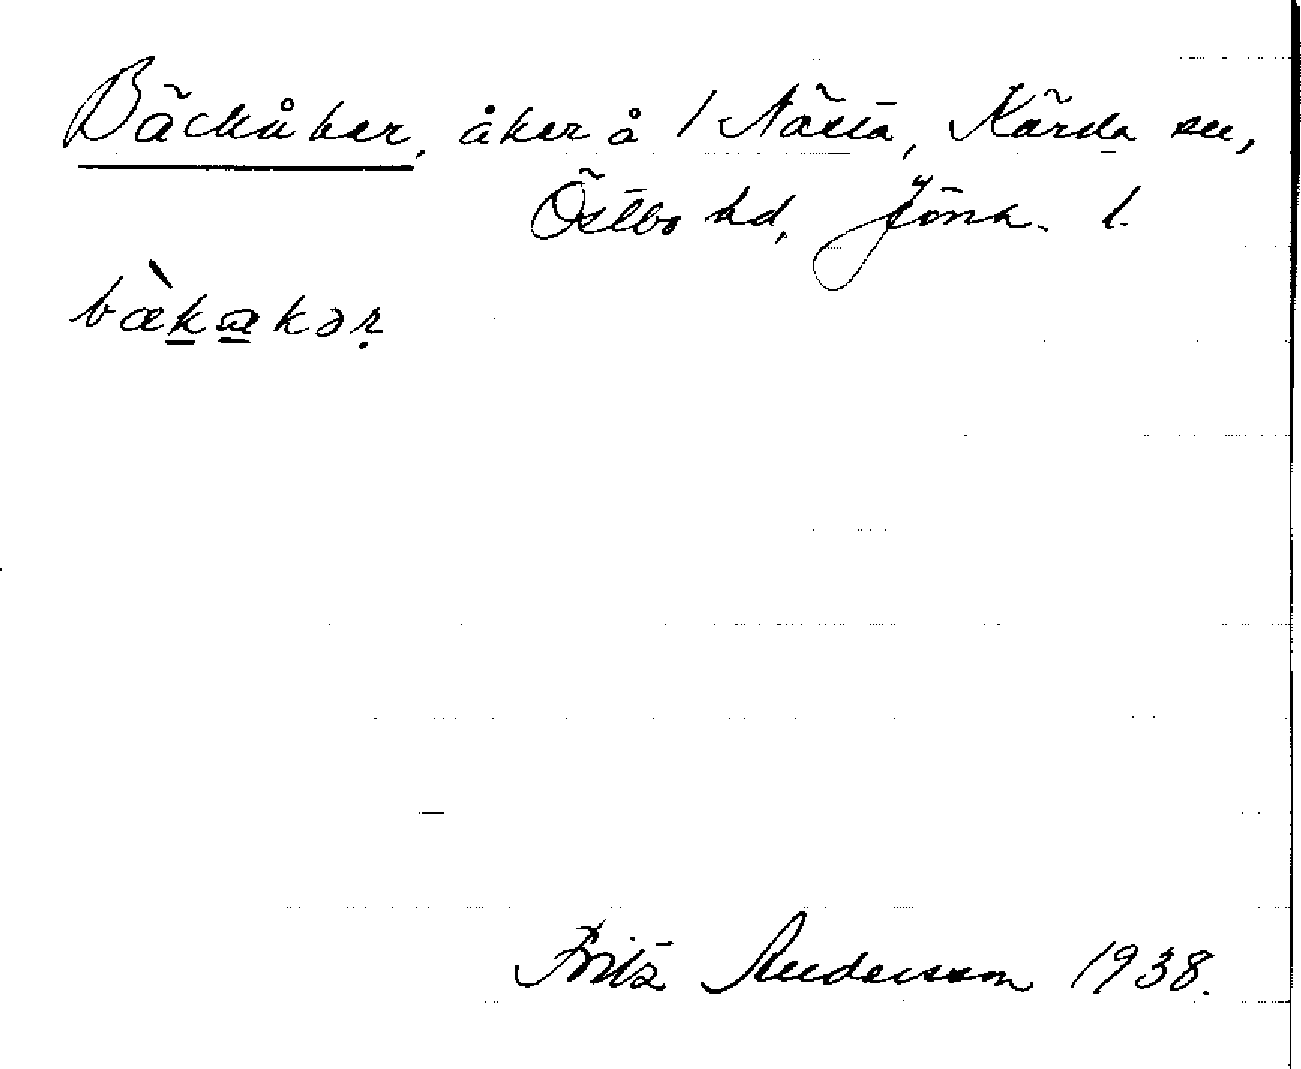 Bäckåker, åker å 1 Nästa, Kärda sn,
Östbo hd, Jönk. l.
bæ̀k̲a̲kər̥
Fritz Andersson 1938.